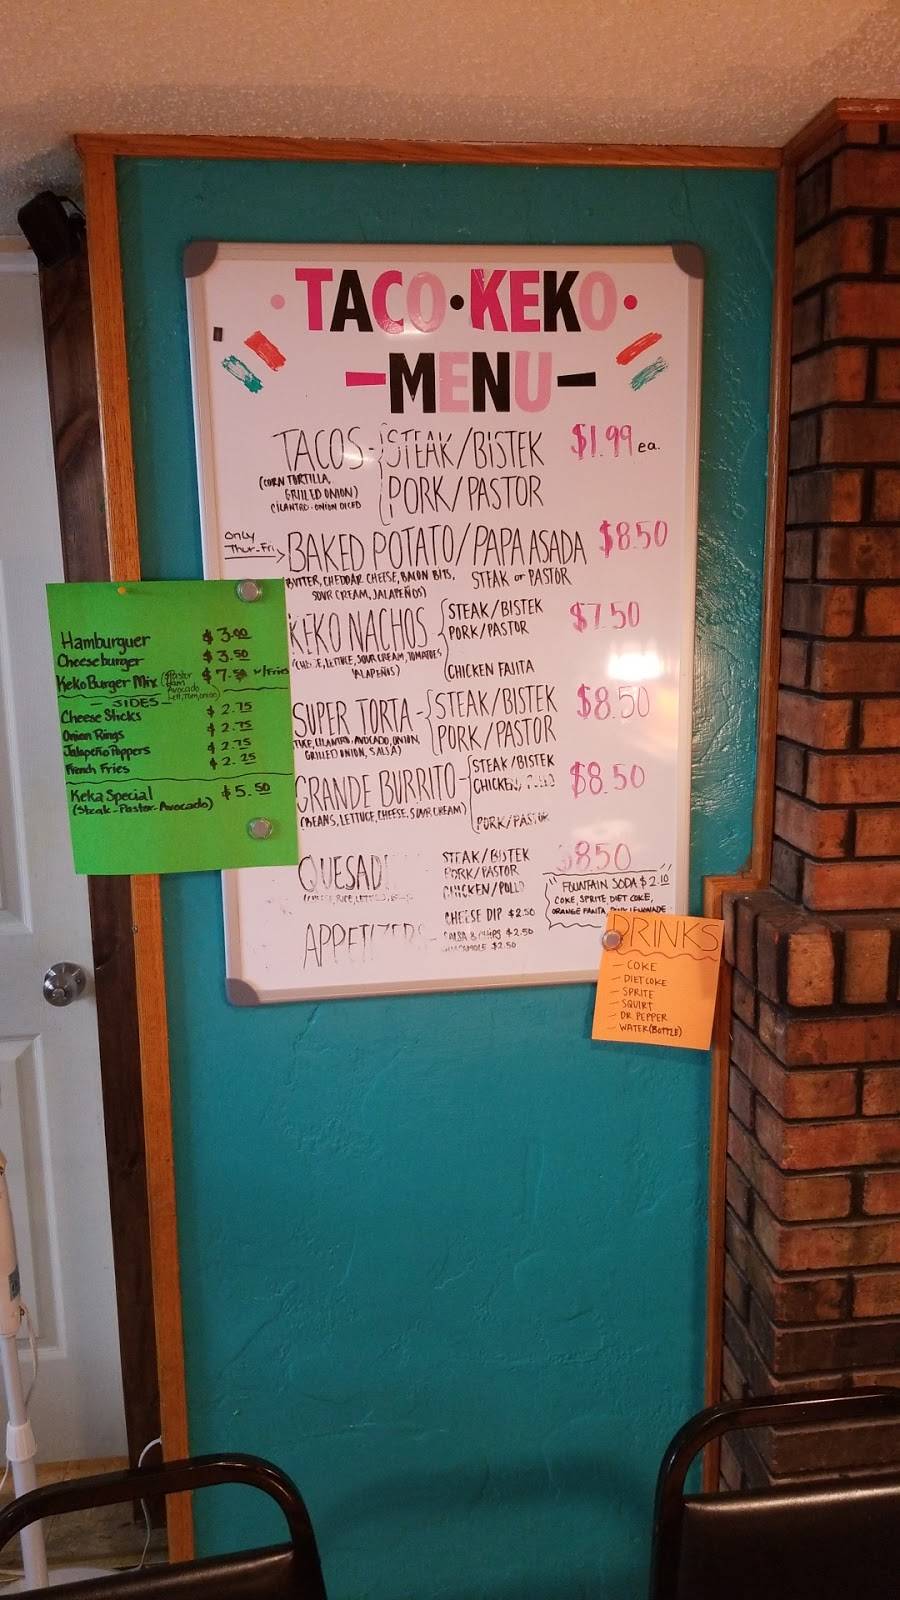 TACO • KEKO
MENU
TACOS - STEAK/BISTEK $1.99 ea.
PORK/PASTOR
(CORN TORTILLA,
GRILLED ONION)
CILANTRO - ONION DICED
Only
Thur-Fri
BAKED POTATO/PAPA ASADA $8.50
BUTTER, CHEDDAR CHEESE, BACON BITS,
SOUR CREAM, JALAPEÑOS)
STEAK or PASTOR
KEKO NACHOS
STEAK/BISTEK $7.50
PORK/PASTOR
CHICKEN FAJITA
LETTUCE, SOUR CREAM, TOMATOES
JALAPEÑOS)
SUPER TORTA - STEAK/BISTEK $8.50
PORK/PASTOR
CILANTRO, AVOCADO, ONION,
GRILLED ONION, SALSA)
GRANDE BURRITO - STEAK/BISTEK $8.50
CHICKEN
PORK/PASTOR
(BEANS, LETTUCE, CHEESE, SOUR CREAM)
QUESAD
STEAK/BISTEK 8.50
PORK/PASTOR
CHICKEN/POLLO
APPETIZERS -
CHEESE DIP $2.50
SALSA & CHIPS $2.50
$2.50
FOUNTAIN SODA $2.10
COKE, SPRITE, DIET COKE,
ORANGE FANTA, PINK LEMONADE
Hamburguer $3.00
Cheeseburger $3.50
Keko Burger Mix $7.50 w/Fries
Ham
Avocado
- SIDES -
Cheese Sticks $2.75
Onion Rings $2.75
Jalapeño Poppers $2.75
French Fries $2.25
Keka Special $5.50
(Steak-Pastor-Avocado)
DRINKS
- COKE
- DIET COKE
- SPRITE
- SQUIRT
- DR PEPPER
- WATER (BOTTLE)